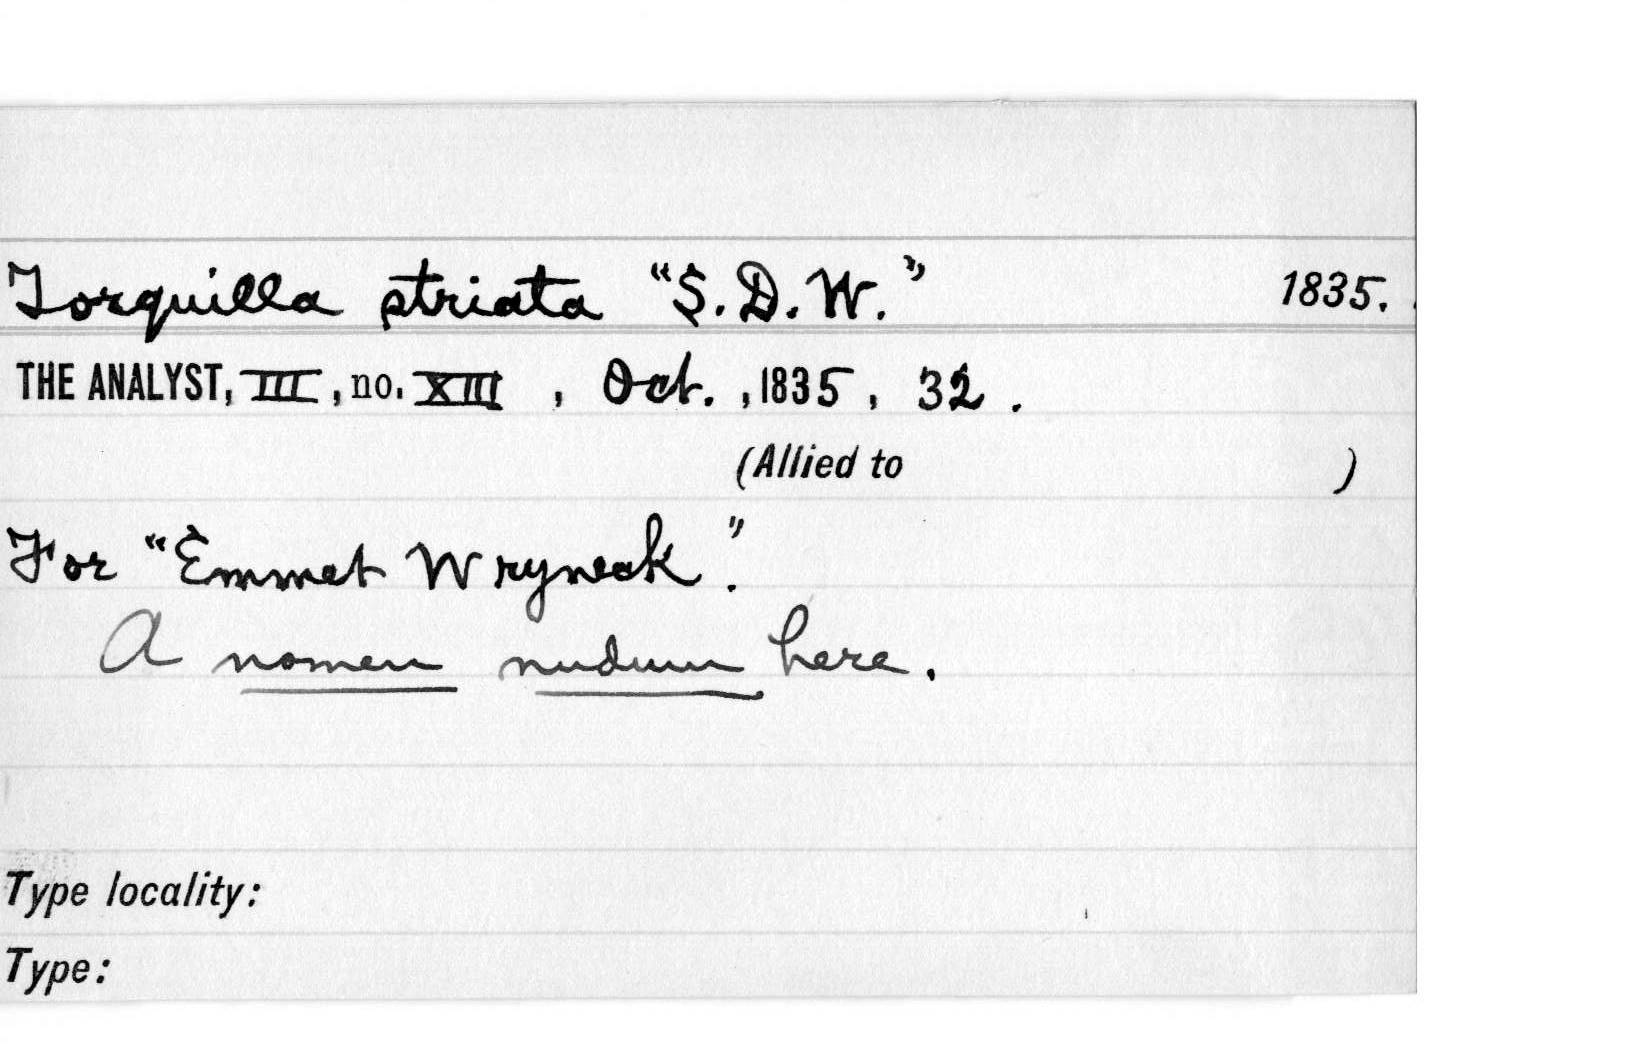 Torquilla striata "S.D.W." 1835.
THE ANALYST, III, no. XIII, Oct., 1835, 32.
(Allied to )
For "Emmet Wryneck".
A nomen nudum here.
Type locality:
Type: